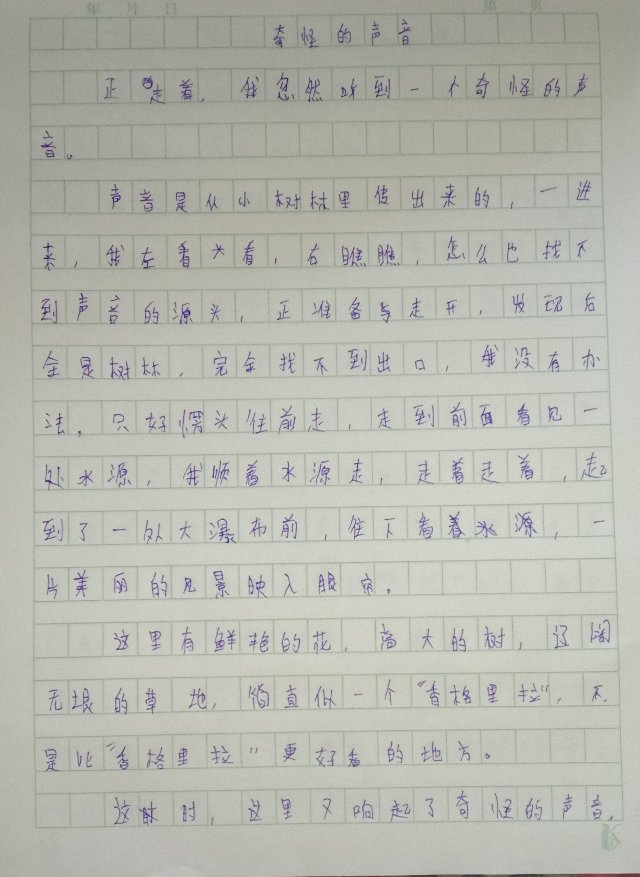 年 月 日 第 页
奇怪的声音
正走着，我忽然听到一个奇怪的声
音。
声音是从小树林里传出来的，一进
来，我左看头看，右瞧瞧，怎么也找不
到声音的源头，正准备与走开，发现后
全是树林，完全找不到出口，我没有办
法，只好愣头往前走，走到前面看见一
处水源，我顺着水源走，走着走着，起
到了一处大瀑布前，往下看着水源，一
片美丽的见景映入眼帘。
这里有鲜艳的花，高大的树，辽阔
无垠的草地，简直似一个“香格里拉”，不
是比“香格里拉”更好看的地方。
这时，这里又响起了奇怪的声音，